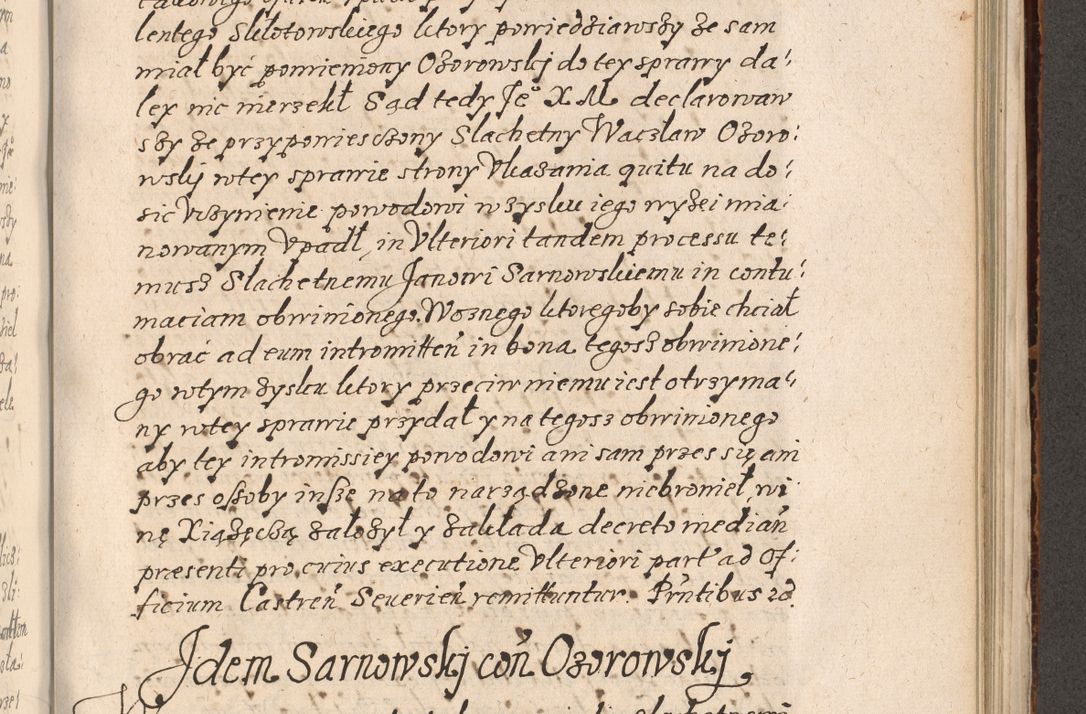 lentego Skłotowskiego ktory powiedziawszy że sam
miał być pomieniony Ozorowskj do tey sprawy da:
ley nic nierzekł Sąd tedy Je° X M declarowaw
szy że przypowiesczony Slachetny Waczław Ozoro:
wskij wtey sprawie strony Vkazania quitu na do:
sic Vczynienie powodowi wzysku iego wyżei mia:
nowanym Vpadł, in Vlteriori tandem processu te:
musz Slachetnemu Janowi Sarnowskiemu in contu:
maciam obwinionego. Woznego ktoregoby sobie chciał
obrać ad eum intromitteń in bona tęgosz obwinione:
go wtym zysku ktory przeciw niemu iest otrzyma:
ny wtey sprawie przydał y na tegosz obwinionego
aby tey intromissiey powodowi ani sam przes się ani
przes osoby insze na to narządzone niebronieł, wi
nę Xiążęcką założył y zakłada decreto median
præsenti pro cuius executione Vlteriori part' ad Of:
ficium Castreń Seuerień remittuntur. Prńtibus 20.
Jdem Sarnowskj coń Ozorowskj